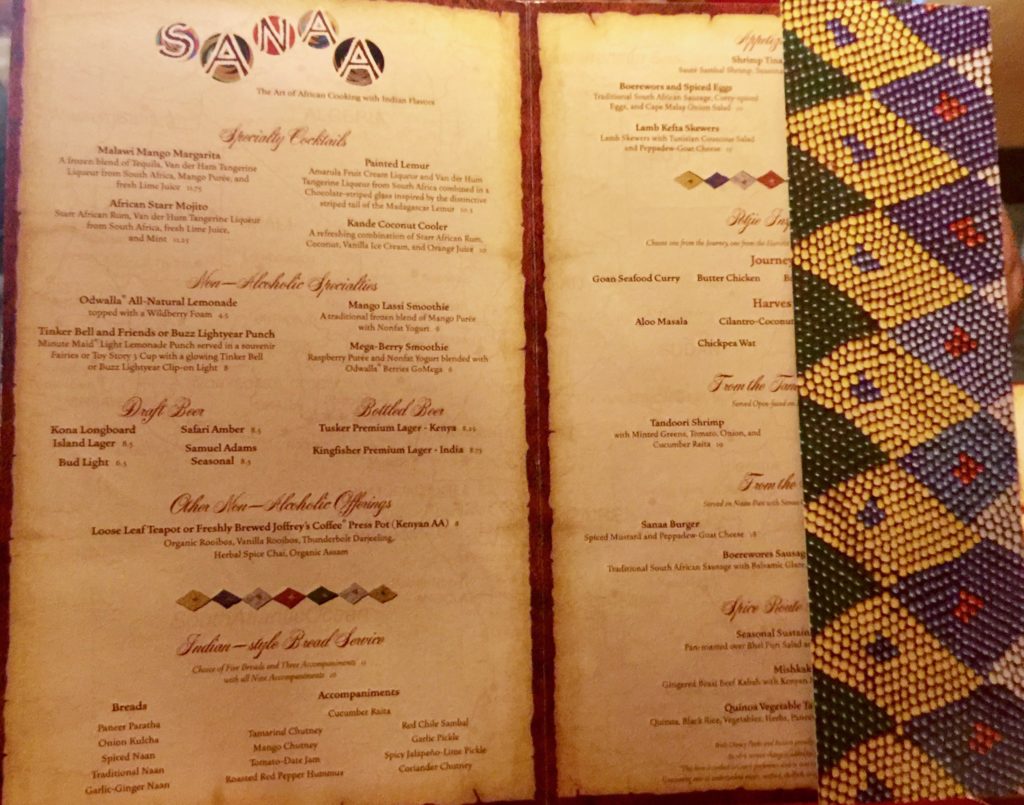 SANAA
The Art of African Cooking with Indian Flavors
Specialty Cocktails
Malawi Mango Margarita
A frozen blend of Tequila, Van der Hum Tangerine
Liqueur from South Africa, Mango Purée, and
fresh Lime Juice 11.75
African Starr Mojito
Starr African Rum, Van der Hum Tangerine Liqueur
from South Africa, fresh Lime Juice,
and Mint 11.25
Painted Lemur
Amarula Fruit Cream Liqueur and Van der Hum
Tangerine Liqueur from South Africa combined in a
Chocolate-striped glass inspired by the distinctive
striped tail of the Madagascar Lemur 10.5
Kande Coconut Cooler
A refreshing combination of Starr African Rum,
Coconut, Vanilla Ice Cream, and Orange Juice 10
Non-Alcoholic Specialties
Odwalla® All-Natural Lemonade
topped with a Wildberry Foam 4.5
Tinker Bell and Friends or Buzz Lightyear Punch
Minute Maid® Light Lemonade Punch served in a souvenir
Fairies or Toy Story 3 Cup with a glowing Tinker Bell
or Buzz Lightyear Clip-on Light 8
Mango Lassi Smoothie
A traditional frozen blend of Mango Purée
with Nonfat Yogurt 6
Mega-Berry Smoothie
Raspberry Purée and Nonfat Yogurt blended with
Odwalla® Berries GoMega 6
Draft Beer
Kona Longboard
Island Lager 8.5
Bud Light 6.5
Safari Amber 8.5
Samuel Adams
Seasonal 8.5
Bottled Beer
Tusker Premium Lager - Kenya 8.25
Kingfisher Premium Lager - India 8.75
Other Non-Alcoholic Offerings
Loose Leaf Teapot or Freshly Brewed Joffrey's Coffee® Press Pot (Kenyan AA)
Organic Rooibos, Vanilla Rooibos, Thunderbolt Darjeeling,
Herbal Spice Chai, Organic Assam
Indian-style Bread Service
Choice of Five Breads and Three Accompaniments
with all Nine Accompaniments
Breads
Paneer Paratha
Onion Kulcha
Spiced Naan
Traditional Naan
Garlic-Ginger Naan
Accompaniments
Cucumber Raita
Tamarind Chutney
Mango Chutney
Tomato-Date Jam
Roasted Red Pepper Hummus
Red Chile Sambal
Garlic Pickle
Spicy Jalapeño-Lime Pickle
Coriander Chutney
Appetiz
Shrimp
Boerewors and Spiced Eggs
Traditional South African Sausage, Curry-spiced
Eggs, and Cape Malay Onion Salad
Lamb Kefta Skewers
Lamb Skewers with Tunisian Couscous Salad
and Peppadew-Goat Cheese
Potjie
Choose one from the Journey, one from the
Journey
Goan Seafood Curry Butter Chicken
Harves
Aloo Masala Cilantro-Coconut
Chickpea Wat
From the
Served Open-faced on
Tandoori Shrimp
with Minted Greens, Tomato, Onion, and
Cucumber Raita 19
From the
Served on Naan
Sanaa Burger
Spiced Mustard and Peppadew-Goat Cheese 18
Boerewores Sausag
Traditional South African Sausage with Balsamic Glaze
Spice Route
Seasonal Sustain
Pan-roasted over Bhel Puri Salad
Mishkak
Gingered Braai Beef Kafteh with Kenyan
Quinoa Vegetable
Quinoa, Black Rice, Vegetables, Herbs,